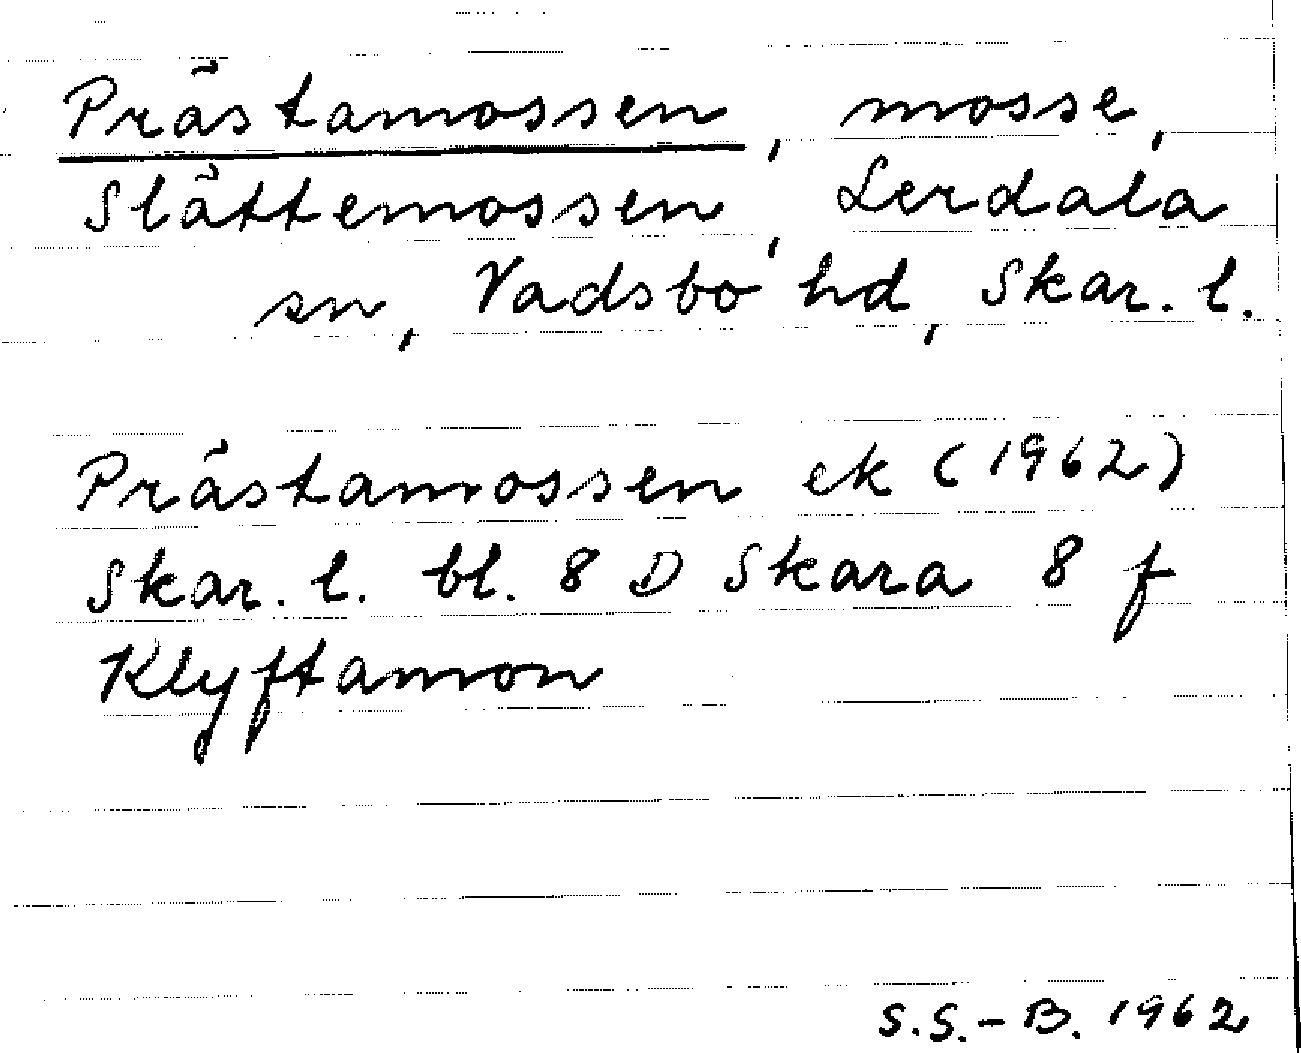 Prästamossen, mosse,
Slättemossen, Lerdala
sn, Vadsbo hd, Skar. l.
Prästamossen ek (1962)
Skar. l. bl. 8 D Skara 8 f
Klyftamon
S.S.-B. 1962